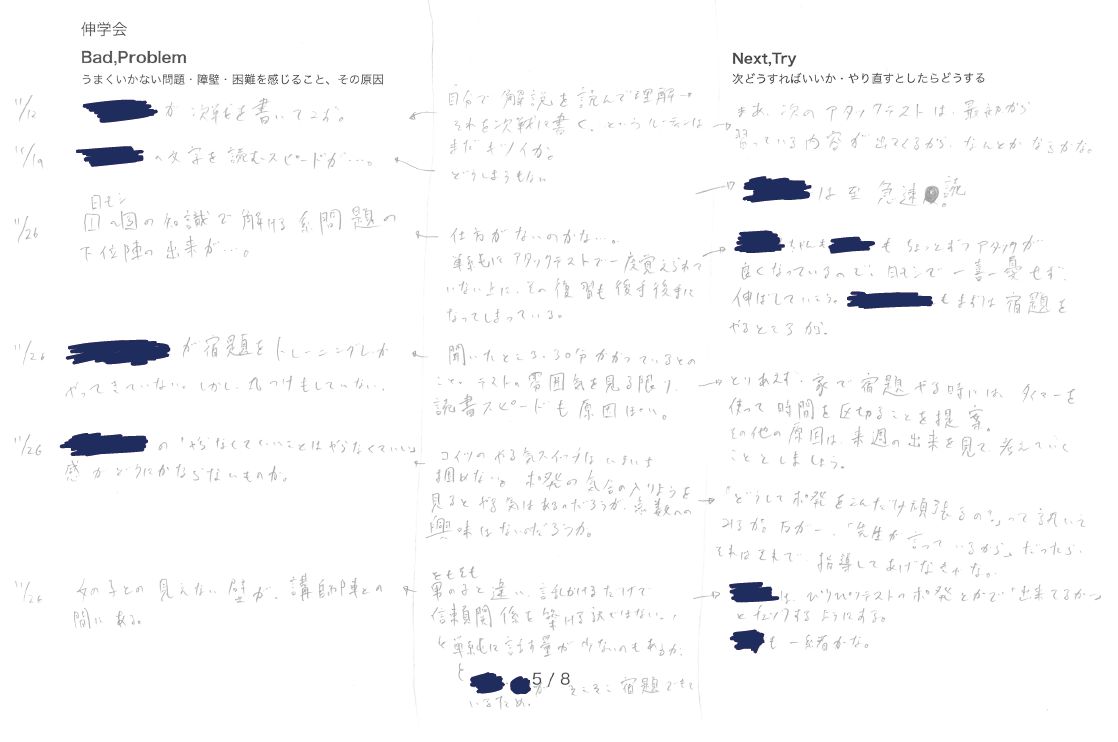 伸学会
Bad,Problem
うまくいかない問題・障壁・困難を感じること、その原因
11/12
が 次戦をを書いてこず。
11/19
の文字を読むスピードが…。
11/26
目モシ
の知識で解ける系問題の
下位陣の出来が…。
11/26
が宿題をトレーニングしか
やってきていない。しかし、丸つけもしていない。
11/26
の「やらなくていいことはやらなくていい」
感 がどうにかならないものか。
11/26
女の子との見えない壁が、講師陣との
間にある。
自分で解説を読んで理解→
それを次戦に書く、というルーティンは
まだキツイか。
どうしようもない
仕方がないのかな…。
単純にアタックテストで一度覚えられて
いない上に、その復習も後手後手に
なってしまっている。
聞いたところ、30分かかっているとの
こと。テストの雰囲気を見る限り、
読書スピードも原因ぽい。
コイツのやる気スイッチはいまいち
掴めない。ポ発の気合の入りようを
見るとやる気はあるのだろうが、系数への
興味はないのだろうか。
ともそも
男の子と違い、話しかけるだけで
信頼関係を築ける訳ではない…、
と単純に話す量が少ないのもあるか、
と
が そこそこ宿題できて
いるため。
5 / 8
Next,Try
次どうすればいいか・やり直すとしたらどうする
まあ、次のアタックテストは、最初から
習っている内容が出てくるから、なんとかなるかな。
は至急速読
ちゃんも も ちょっとずつアタックが
良くなっているので、目モシで一喜一憂せず、
伸ばしていこう。 もまずは宿題を
やるところから。
とりあえず、家で宿題やる時には、タイマーを
使って時間を区切ることを提案。
その他の原因は、来週の出来を見て考えていく
こととしましょう。
「どうしてポ発をこんなだけ頑張るの？」って訊いて
みるか。万が一、「先生が言っているから」だったら、
それはそれで、指導してあげなきゃな。
は、ぴりぴりテストのポ発とかで「出来てるか？」
とチェックするようにする。
も一緒かな。